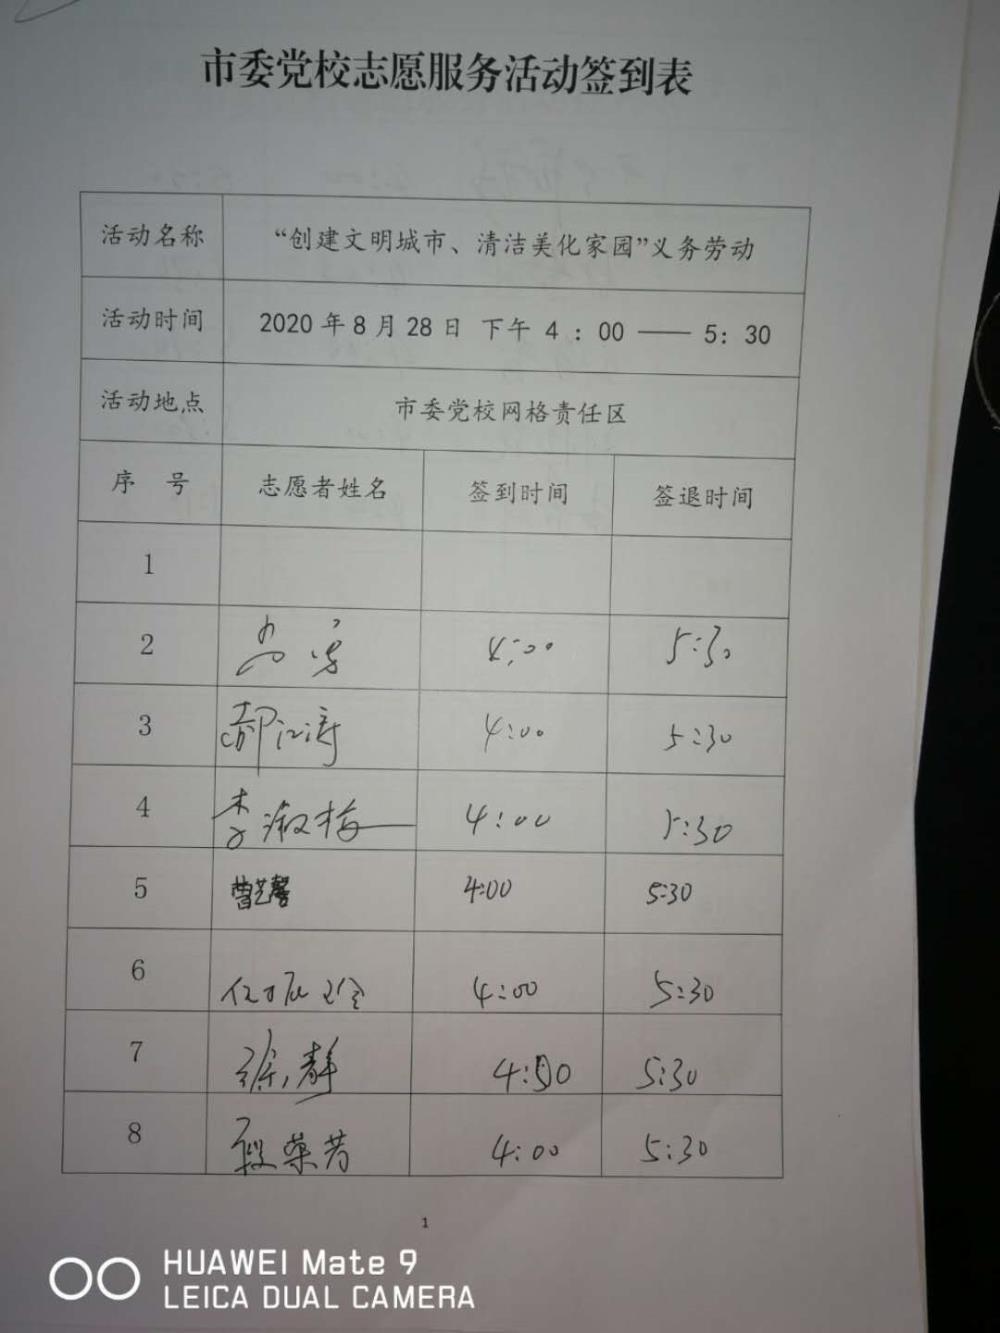 市委党校志愿服务活动签到表
活动名称 “创建文明城市、清洁美化家园”义务劳动
活动时间 2020 年 8 月 28 日 下午 4 : 00 —— 5: 30
活动地点 市委党校网格责任区
序 号 志愿者姓名 签到时间 签退时间
1
2 4:00 5:30
3 郝江涛 4:00 5:30
4 李淑梅 4:00 5:30
5 曹艺馨 4:00 5:30
6 4:00 5:30
7 徐静 4:00 5:30
8 段荣芳 4:00 5:30
1
HUAWEI Mate 9
LEICA DUAL CAMERA